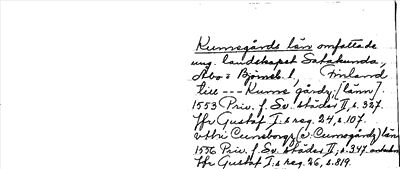 Kumogårds län omfattade
ung. landskapet Satakunda,
Åbo o Björneb. l., Finland
till --- Kumo gårdz [länn].
1553 Priv. f. Sv. städer II, s. 327.
Jfr Gustaf I:s reg. 24, s. 107.
1556 Priv. f. Sv. städer II, s. 347
Jfr Gustaf I:s reg. 26, s. 819.